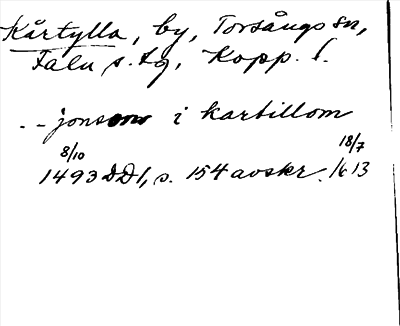 Kårtylla, by, Torsångs sn,
Falu s. tg, Kopp. l.
-- jonsson i kartillom
8/10 18/7
1493 DD1, s. 154 avskr. 1613